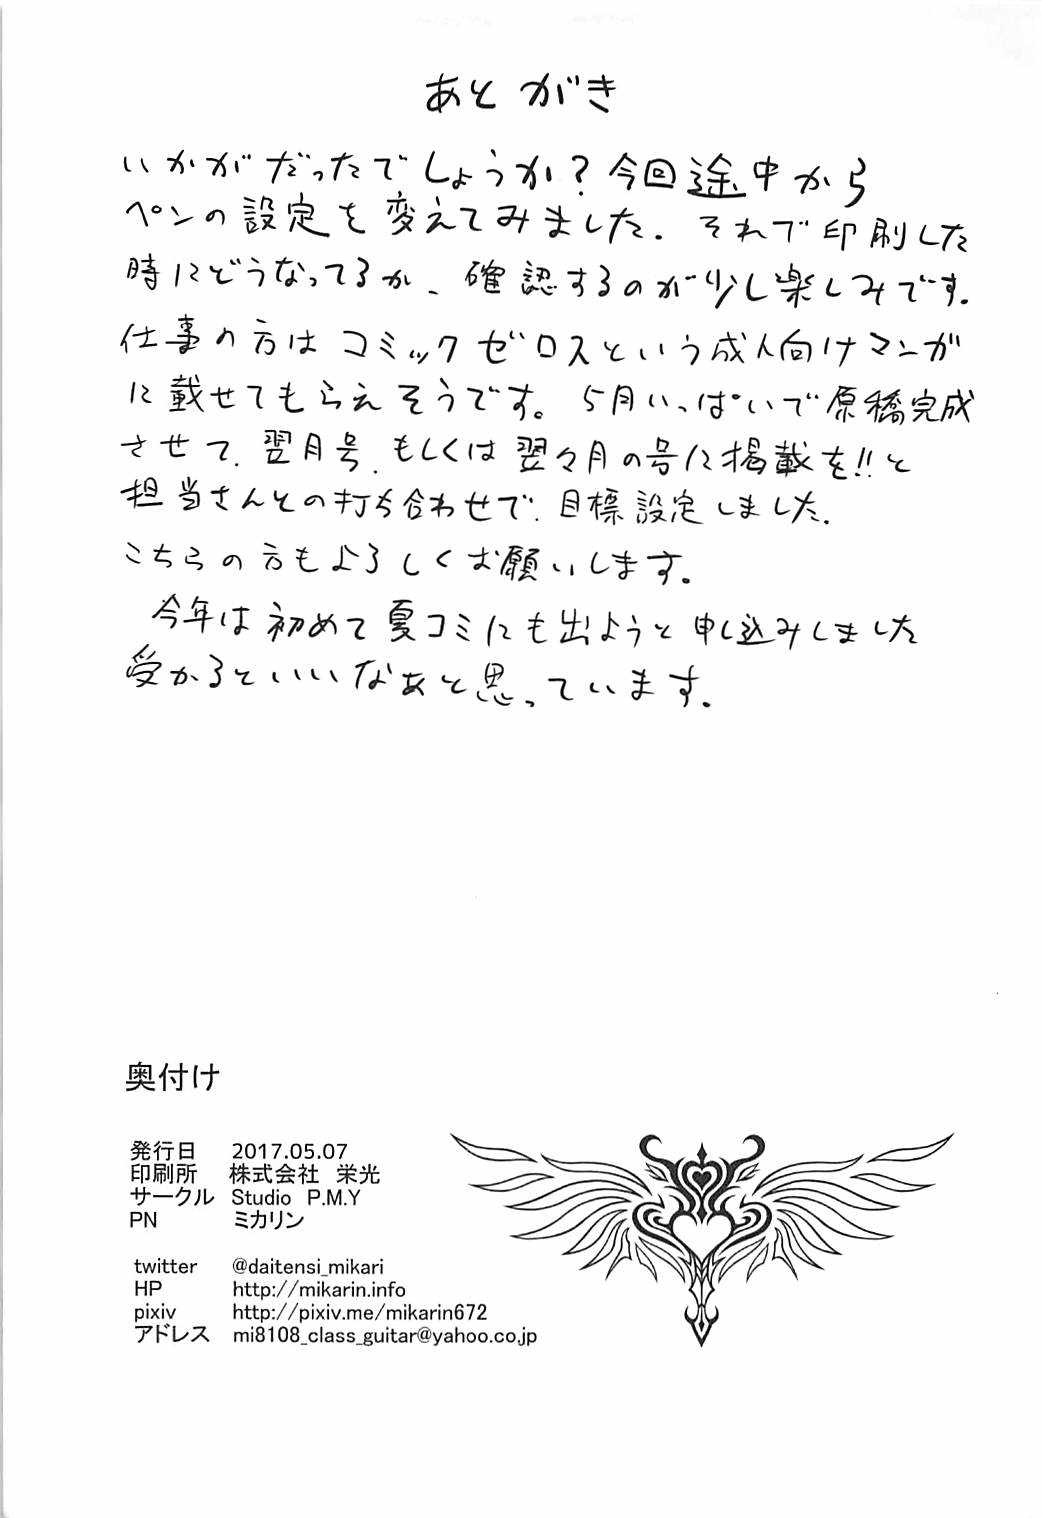 あとがき
いかがだったでしょうか?今回途中から
ペンの設定を変えてみました. それで印刷した
時にどうなってるか、確認するのが少し楽しみです.
仕事の方はコミックゼロスという成人向けマンガ
に載せてもらえそうです。5月いっぱいで原稿完成
させて、翌月号、もしくは翌々月の号に掲載を!!と
担当さんとの打ち合わせで、目標設定しました.
こちらの方もよろしくお願いします.
今年は初めて夏コミにも出ようと申し込みしました
受かるといいなぁと思っています.
奥付け
発行日 2017.05.07
印刷所 株式会社 栄光
サークル Studio P.M.Y
PN ミカリン
twitter @daitensi_mikari
HP http://mikarin.info
pixiv http://pixiv.me/mikarin672
アドレス mi8108_class_guitar@yahoo.co.jp